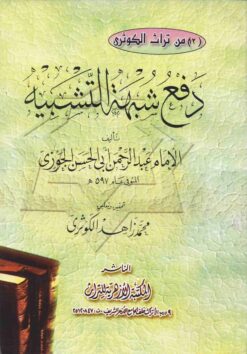 (٢) من تراث الكوثرى
دفع شبهة التشبيه
تأليف
الإمام عبد الرحمن أبى الحسن الجوزى
المتوفى عام ٥٩٧ هـ
تحقيق وتعليق
محمد زاهد الكوثرى
الناشر
المكتبة الأزهرية للتراث